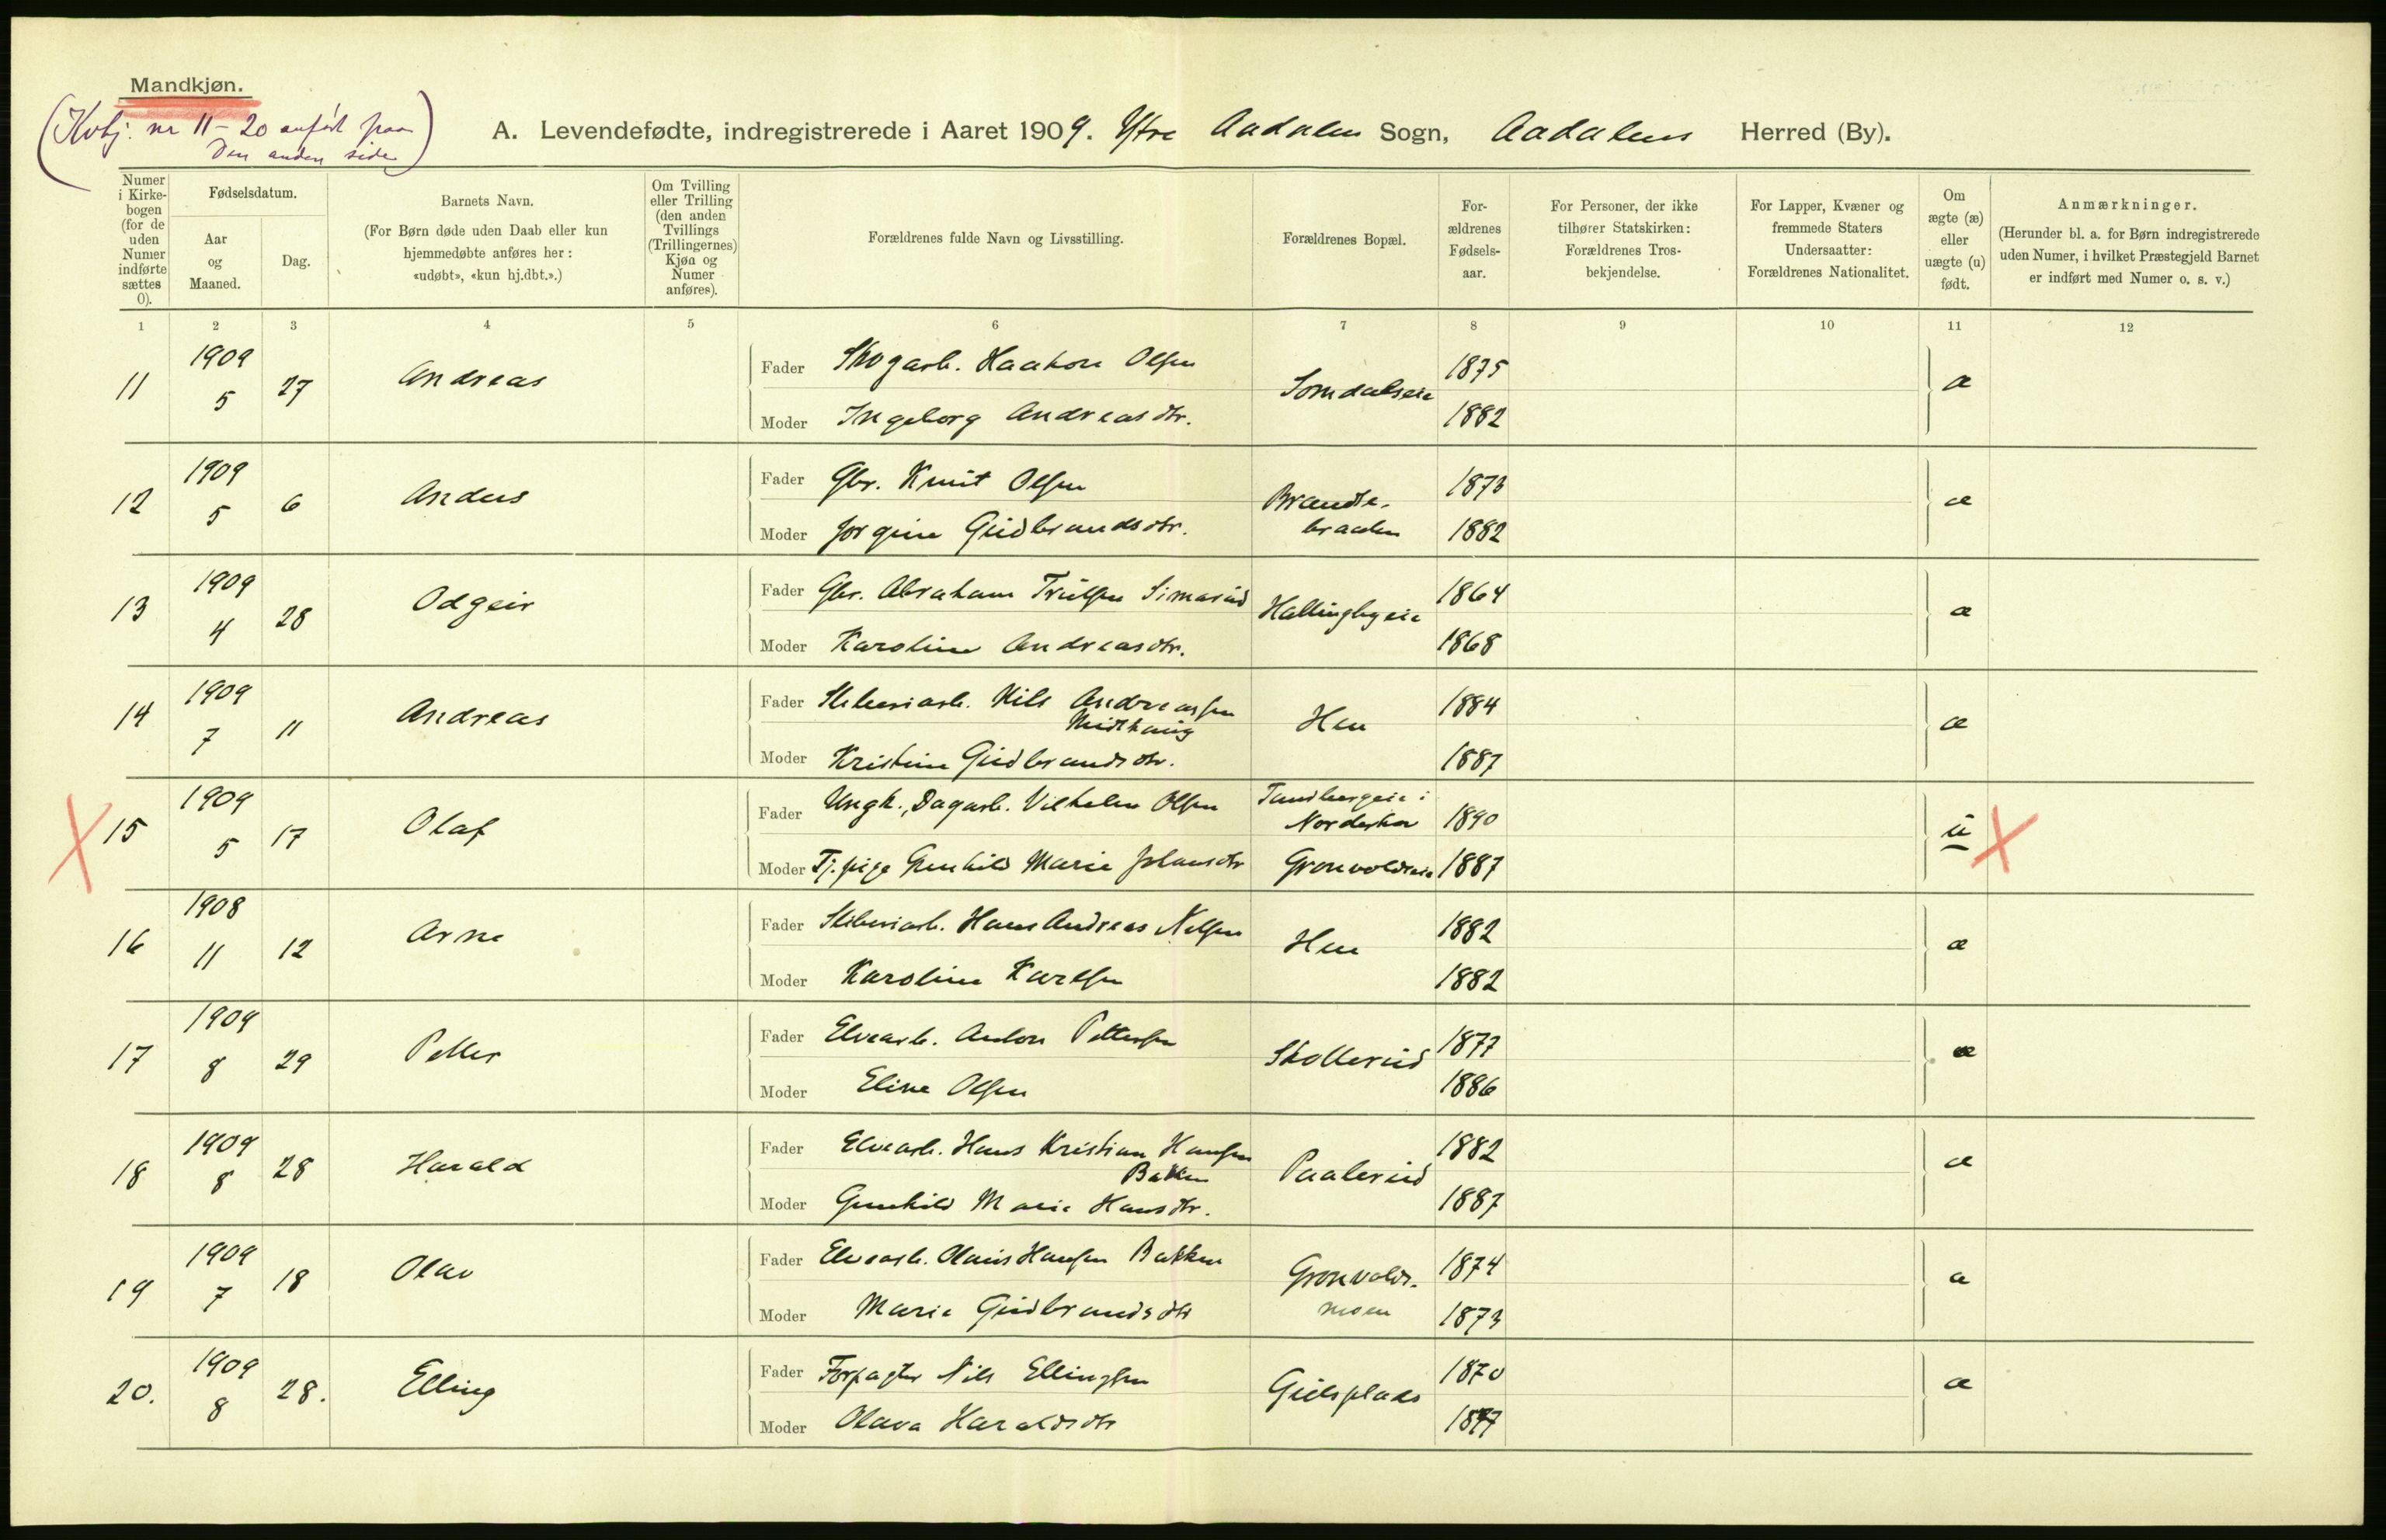 Mandkjøn.
(Kvkj. nr 11-20 anført paa
Den anden side)
A. Levendefødte, indregistrerede i Aaret 1909. Ytre Aadalen Sogn, Aadalens Herred (By).
Numer i Kirkebogen (for de uden Numer indførte sættes 0).
Fødselsdatum.
Aar og Maaned.
Dag.
Barnets Navn.
(For Børn døde uden Daab eller kun hjemmedøbte anføres her: «udøbt», «kun hj.dbt.».)
Om Tvilling eller Trilling (den anden Tvillings (Trillingernes) Kjøn og Numer anføres).
Forældrenes fulde Navn og Livsstilling.
Forældrenes Bopæl.
For-ældrenes Fødsels-aar.
For Personer, der ikke tilhører Statskirken: Forældrenes Tros-bekjendelse.
For Lapper, Kvæner og fremmede Staters Undersaatter: Forældrenes Nationalitet.
Om ægte (æ) eller uægte (u) født.
Anmærkninger.
(Herunder bl. a. for Børn indregistrerede uden Numer, i hvilket Præstegjeld Barnet er indført med Numer o. s. v.)
1 2 3 4 5 6 7 8 9 10 11 12
11 1909 5 27 Andreas Fader Skogarb. Haakon Olsen Somdalseie 1875 æ
Moder Ingeborg Andreasdtr. 1882
12 1909 5 6 Anders Fader Gbr. Knut Olsen Brændte- 1873 æ
Moder Jorgine Gudbrandsdtr. braaten 1882
13 1909 4 28 Odgeir Fader Gbr. Abraham Trulsen Simarud Hallingbyeie 1864 æ
Moder Karoline Andreasdtr. 1868
14 1909 7 11 Andreas Fader Sliberiarb. Nils Andreassen Midthaug Hen 1884 æ
Moder Kristine Gudbrandsdtr. 1887
15 1909 5 17 Olaf Fader Ungk., Dagarb. Vilhelm Olsen Tandbergeie i Norderhov 1890 u
Moder Tj. pige Gunhild Marie Johansdtr Grønvoldseie 1887
16 1908 11 12 Arne Fader Sliberiarb. Hans Andreas Nilsen Hen 1882 æ
Moder Karoline Karlsen 1882
17 1909 8 29 Petter Fader Elvearb. Anton Pettersen Skollerud 1877 æ
Moder Eline Olsen 1886
18 1909 8 28 Harald Fader Elvearb. Hans Kristian Hansen Bakken Paalerud 1882 æ
Moder Gunhild Marie Hansdtr. 1887
19 1909 7 18 Olav Fader Elvearb. Olaus Hansen Bakken Grønvolds- 1874 æ
Moder Marie Gudbrandsdtr moen 1873
20. 1909 8 28. Elling Fader Forpagter Nils Ellingsen Gulsplads 1870 æ
Moder Olava Haraldsdtr 1877